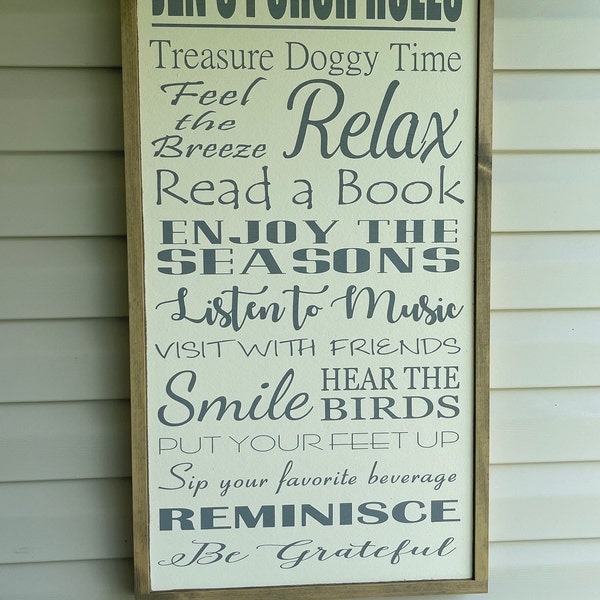 JEN'S PORCH RULES
Treasure Doggy Time
Feel
the
Breeze
Relax
Read a Book
ENJOY THE
SEASONS
Listen to Music
VISIT WITH FRIENDS
Smile
HEAR THE
BIRDS
PUT YOUR FEET UP
Sip your favorite beverage
REMINISCE
Be Grateful